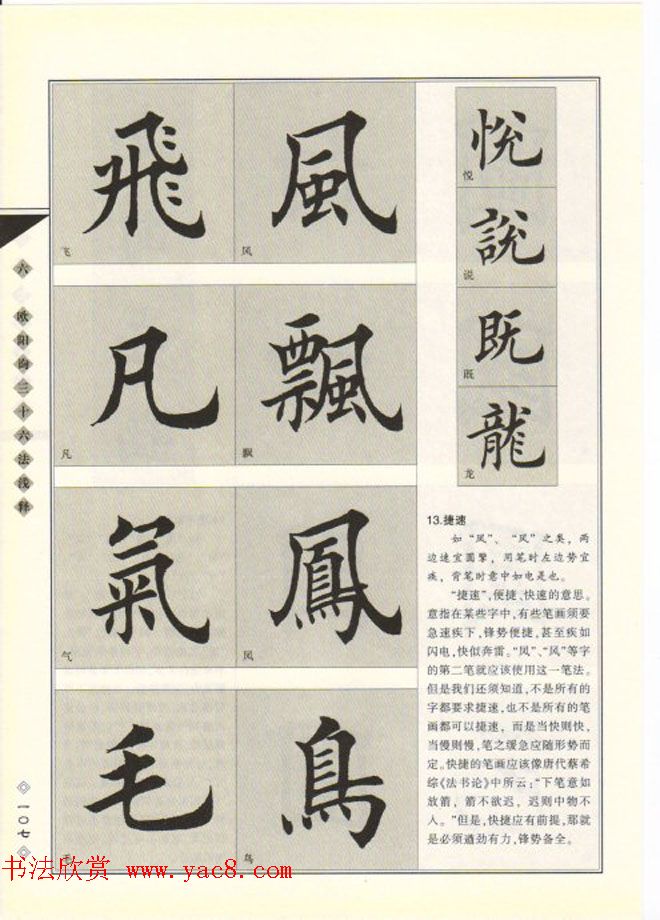 飛 風 悅
飞 风 悦
說
说
凡 飄 既
凡 飘 既
龍
龙
氣 鳳
气 凤
毛 鳥
毛 鸟
13.捷速
如“凤”、“风”之类，两
边速宜圆擎，用笔时左边势宜
疾，背笔时意中如电是也。
“捷速”,便捷、快速的意思。
意指在某些字中,有些笔画须要
急速疾下,锋势便捷,甚至疾如
闪电,快似奔雷。“凤”、“风”等字
的第二笔就应该使用这一笔法。
但是我们还须知道,不是所有的
字都要求捷速,也不是所有的笔
画都可以捷速，而是当快则快,
当慢则慢,笔之缓急应随形势而
定。快捷的笔画应该像唐代蔡希
综《法书论》中所云:“下笔意如
放箭，箭不欲迟，迟则中物不
入。”但是,快捷应有前提,那就
是必须遒劲有力,锋势备全。
六 欧阳询三十六法浅释
一〇七
书法欣赏 www.yac8.com